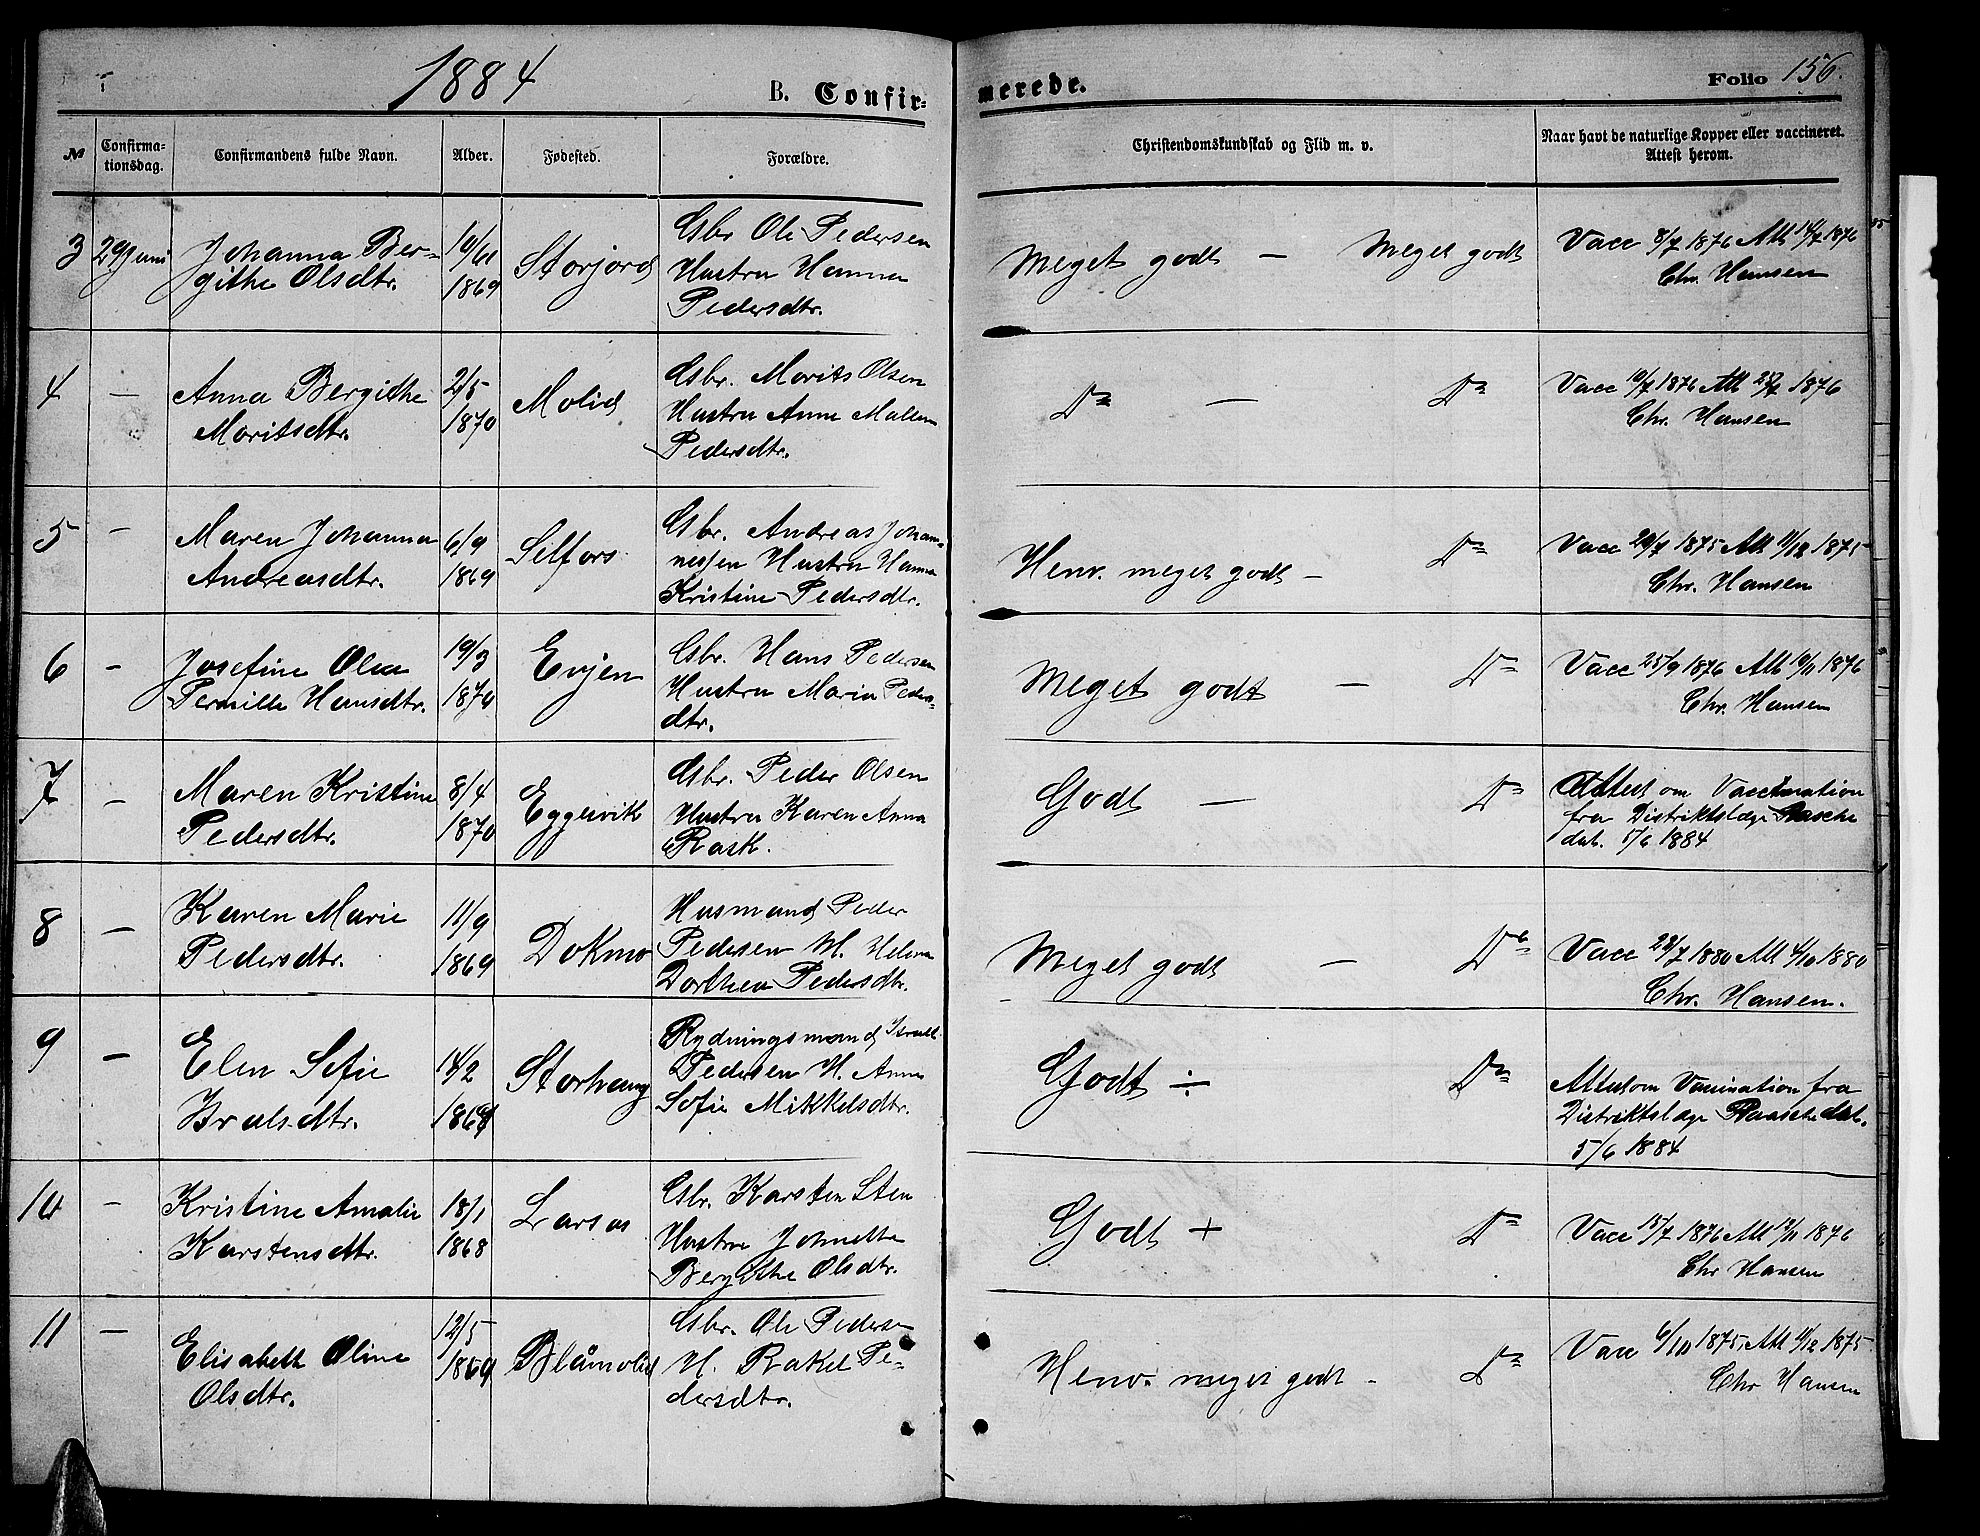 1884
B. Confir-
merede.
Folio 156.
№
Confirma-
tionsdag.
Confirmandens fulde Navn.
Alder.
Fødested.
Forældre.
Christendomskundskab og Flid m. v.
Naar havt de naturlige Kopper eller vaccineret.
Attest herom.
3 29 Juni Johanna Ber-
githe Olsdtr.
1869
Storjord
Gbr Ole Pedersen
Hustru Hanna
Pedersdtr.
Meget godt — Meget godt
Vacc 8/7 1876 Att 14/7 1876
Chr. Hansen
4 — Anna Bergithe
Moritsdtr.
2/5
1870
Molid
Gbr. Morits Olsen
Hustru Anne Malene
Pedersdtr.
Do — Do
Vacc 10/7 1876 Att 1876
Chr. Hansen
5 — Maren Johanna
Andreasdtr.
6/9
1869
Selfors
Gbr. Andreas Johan-
nessen Hustru Hanna
Kristine Pedersdtr.
Henv. meget godt — Do
Vacc 29/7 1875 Att 11/12 1875
Chr. Hansen
6 — Josefine Olea
Pernille Hansdtr.
19/3
1870
Evjen
Gbr. Hans Pedersen
Hustru Maria Peders-
dtr.
Meget godt — Do
Vacc 25/9 1876 Att 10/11 1876
Chr. Hansen
7 — Maren Kristine
Pedersdtr.
8/4
1870
Eggesvik
Gbr. Peder Olsen
Hustru Karen Anna
Rask.
Godt — Do
Attest om Vaccination
fra Distriktslæge Raasche
dat. 5/6 1884
8 — Karen Marie
Pedersdtr.
11/9
1869
Dokmo
Husmand Peder
Pedersen H. Helena
Dorthea Pedersdtr.
Meget godt — Do
Vacc 28/7 1880 Att 4/10 1880
Chr. Hansen.
9 — Elen Sofie
Isralsdtr.
14/2
1869
Storhaug
Rydningsmand Israel
Pedersen H. Anne
Sofie Mikkelsdtr.
Godt ÷ Do
Attest om Vaccination fra
Distriktslæge Raasche dat.
5/6 1884
10 — Kristine Amalie
Karstensdtr.
18/1
1868
Larsos
Gbr. Karsten Sten
Hustru Johnetta
Bergithe Olsdtr.
Godt + Do
Vacc 15/7 1876 Att 10/11 1876
Chr Hansen
11 — Elisabeth Oline
Olsdtr.
12/5
1869
Blåmolid
Gbr. Ole Pedersen
H. Rakel Pe-
dersdtr.
Henv. meget godt - Do
Vacc 6/10 1875, Att 11/12 1875
Chr Hansen